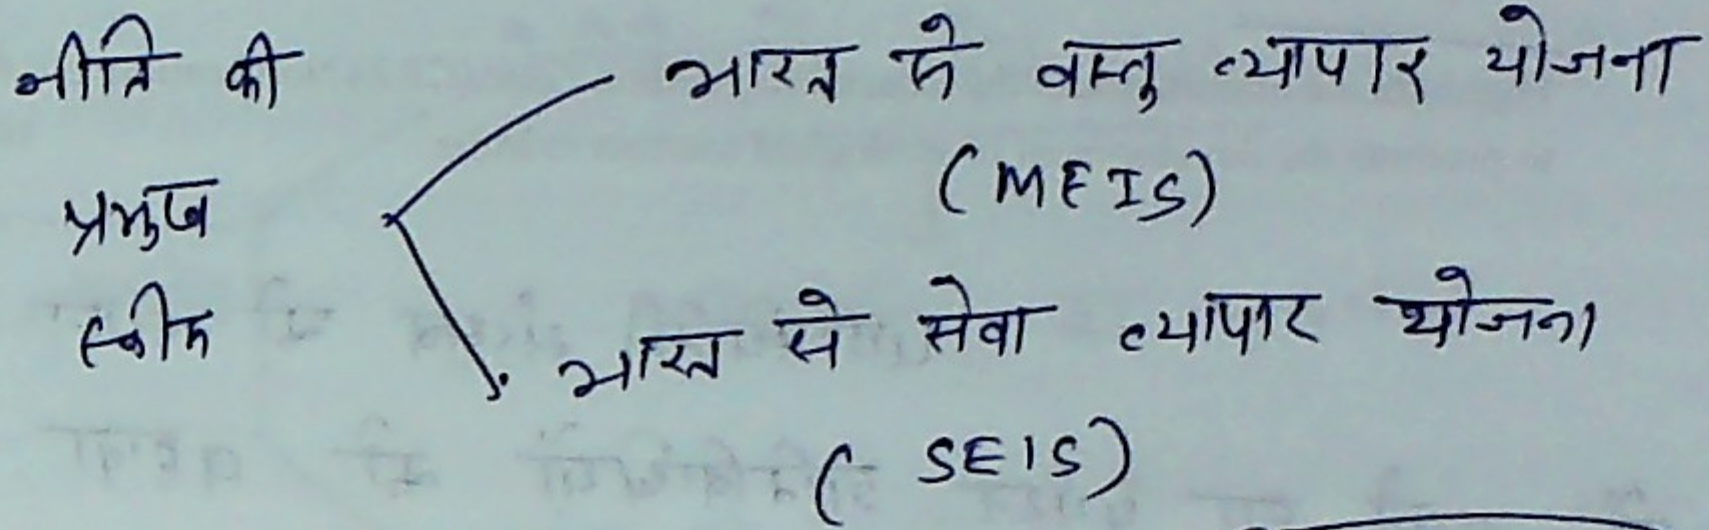 नीति की
प्रमुख
स्कीम
भारत से वस्तु व्यापार योजना
(MEIS)
भारत से सेवा व्यापार योजना
(SEIS)